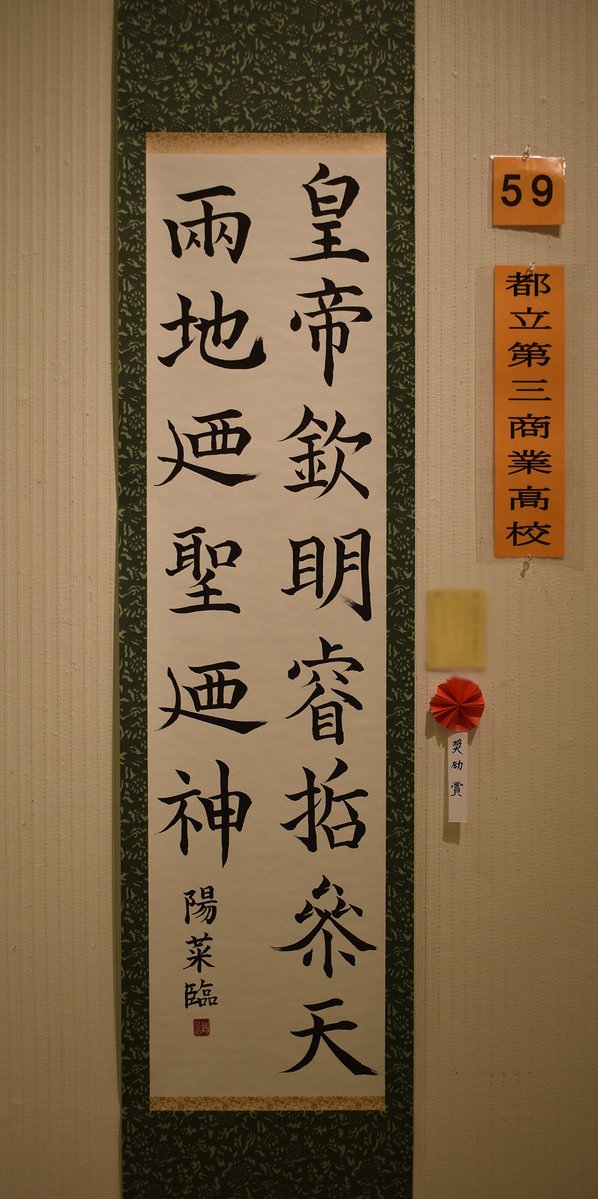 59
都立第三商業高校
奨励賞
皇帝欽明睿哲叅天
兩地廼聖廼神
陽菜臨